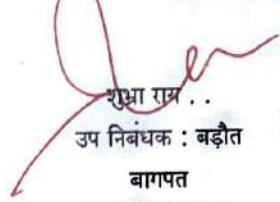 शुभ्रा राय . .
उप निबंधक : बड़ौत
बागपत